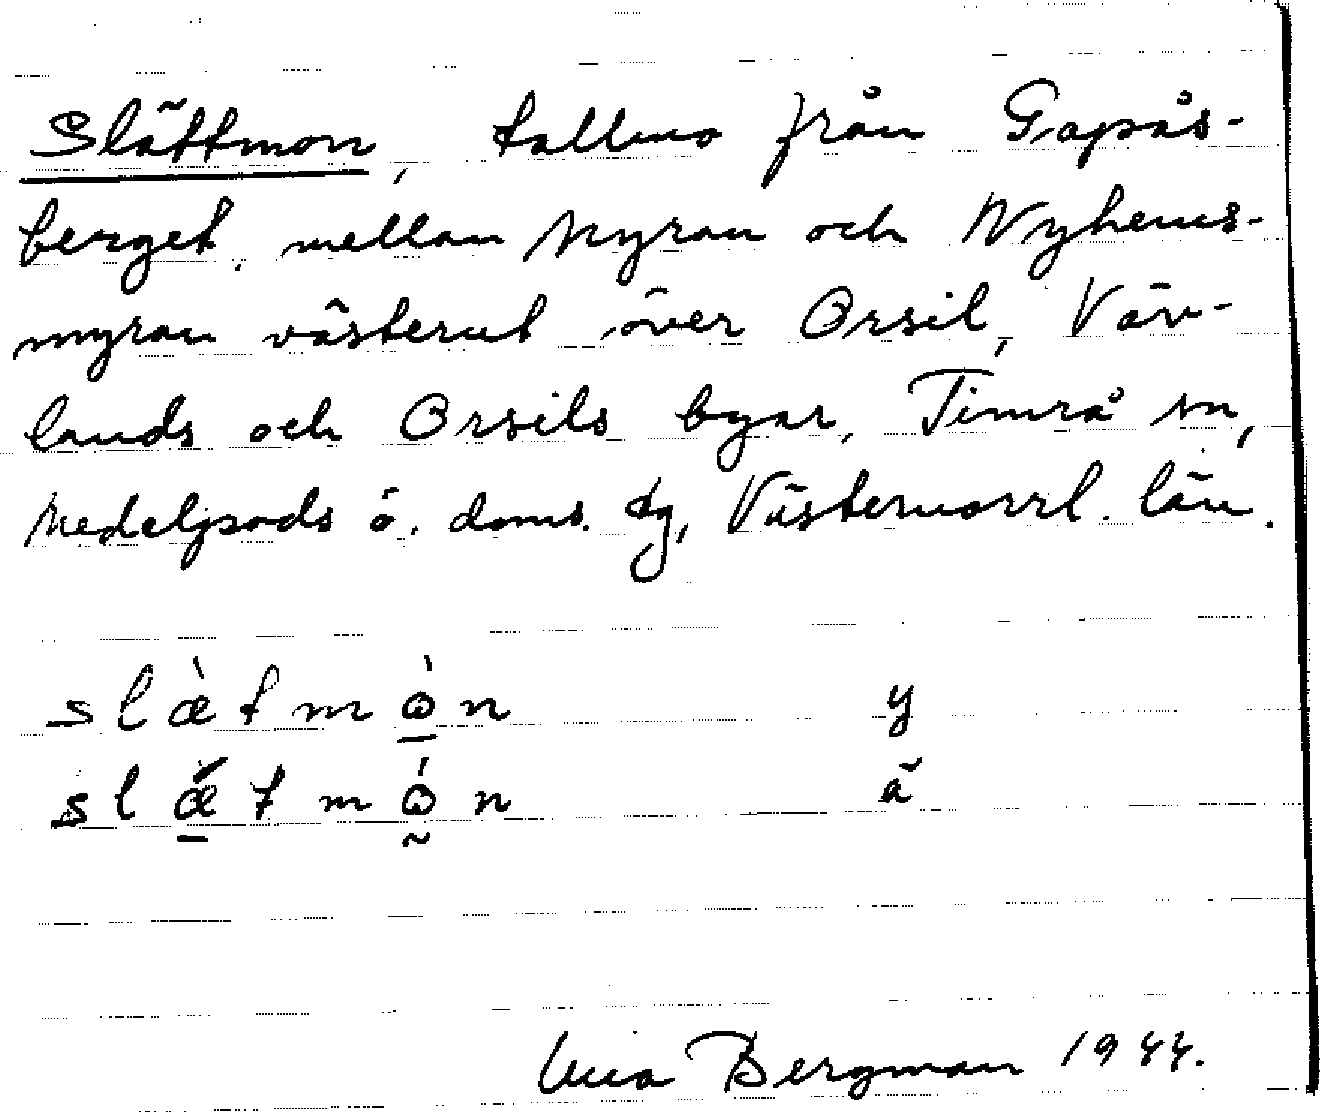 Slättmon, tallmo från Gapås-
berget, mellan Myran och Nyhems-
myran västerut över Orsil, Väv-
lands och Orsils byar, Timrå sn,
Medelpads ö. doms. tg, Västernorrl. län.
slæ̀tmɷ̀n y
slǽtmɷ́n ä
Bergman 1944.